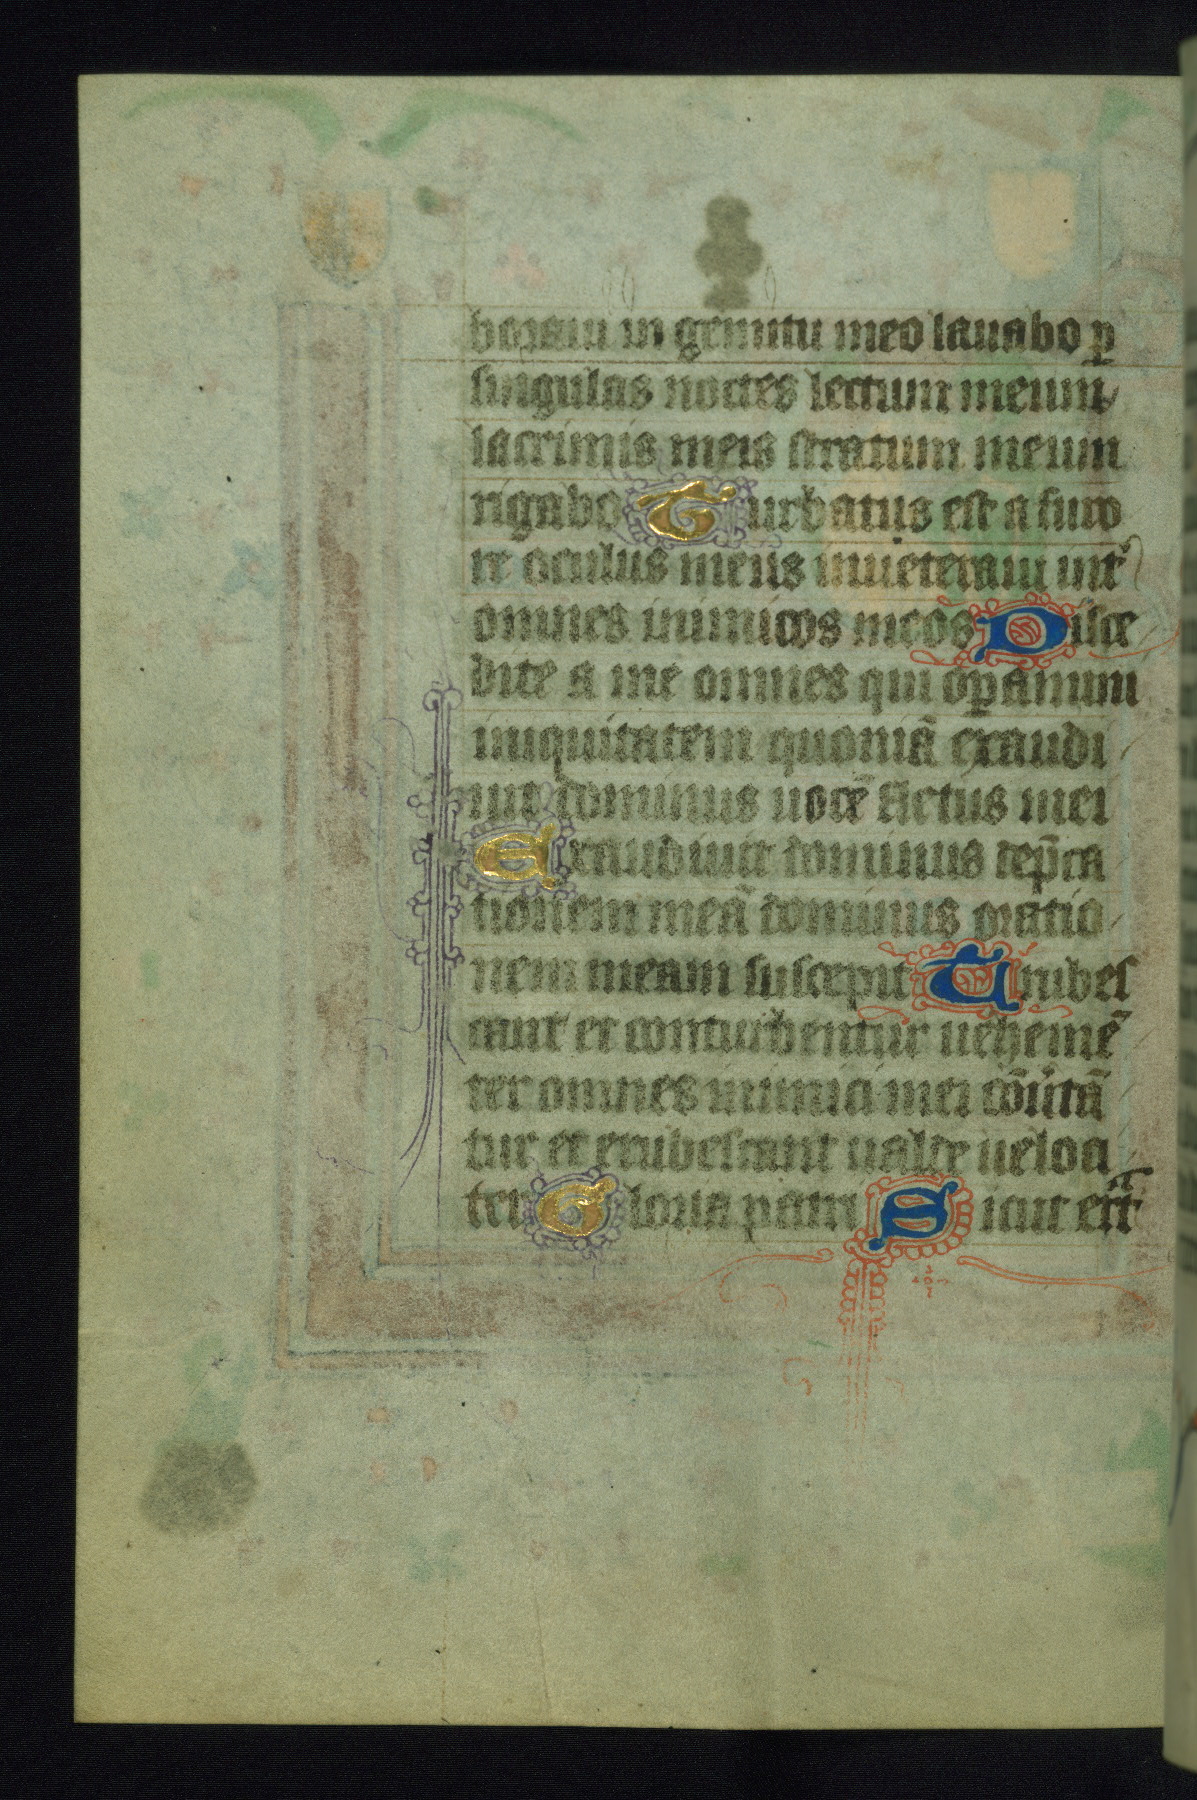 boraui in gemitu meo lauabo ꝑ
singulas noctes lectum meum
lacrimis meis stratum meum
rigabo Turbatus est a furo
re oculus meus inueteraui int̄
omnes inimicos meos Disce
dite a me omnes qui oꝑamini
iniquitatem quoniā exaudi
uit dominus uocē fletus mei
Exaudiuit dominus dep̄ca
tionem meā dominus oratio
nem meam suscepit Erubes
cant et conturbentur uehemē
ter omnes inimici mei
tur et erubescant ualde ueloci
ter Gloria patri Sicut erat